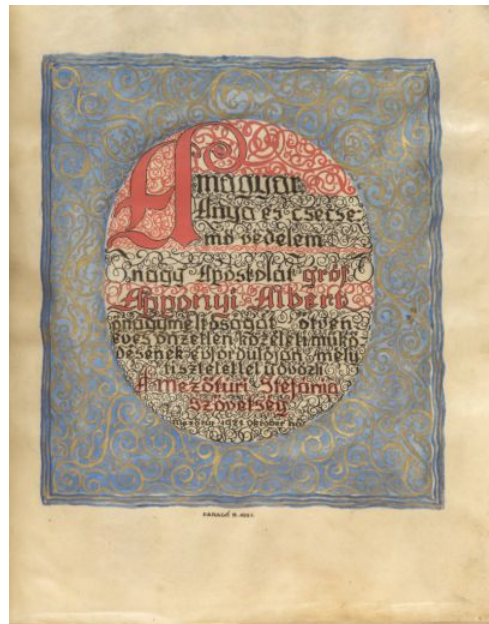 A magyar
Anya és csecse-
mő védelem
nagy Apostolát gróf
Apponyi Albert
őnagyméltóságát ötven
éves önzetlen közéleti műkö-
désének évfordulóján mély
tisztelettel üdvözli
A mezőtúri Stefánia
Szövetség
Mezőtúr 1921 Október hó
FARAGÓ B. 1921.